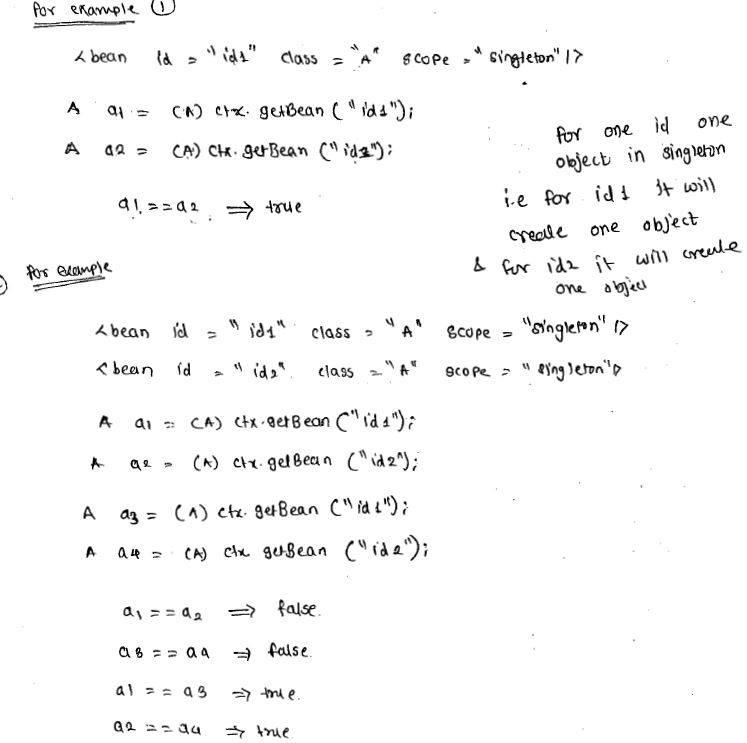 for example ①
<bean id = "id1" class = "A" scope = "singleton" />
A a1 = (A) ctx.getBean ("id1");
A a2 = (A) ctx.getBean ("id1");
a1 == a2 ⇒ true
for one id one
object in singleton
i.e for id1 it will
create one object
& for id2 it will create
one object
for example
<bean id = "id1" class = "A" scope = "singleton" />
<bean id = "id2" class = "A" scope = "singleton">
A a1 = (A) ctx.getBean ("id1");
A a2 = (A) ctx.getBean ("id2");
A a3 = (A) ctx.getBean ("id1");
A a4 = (A) ctx getBean ("id2");
a1 == a2 ⇒ false.
a3 == a4 ⇒ false.
a1 == a3 ⇒ true.
a2 == a4 ⇒ true